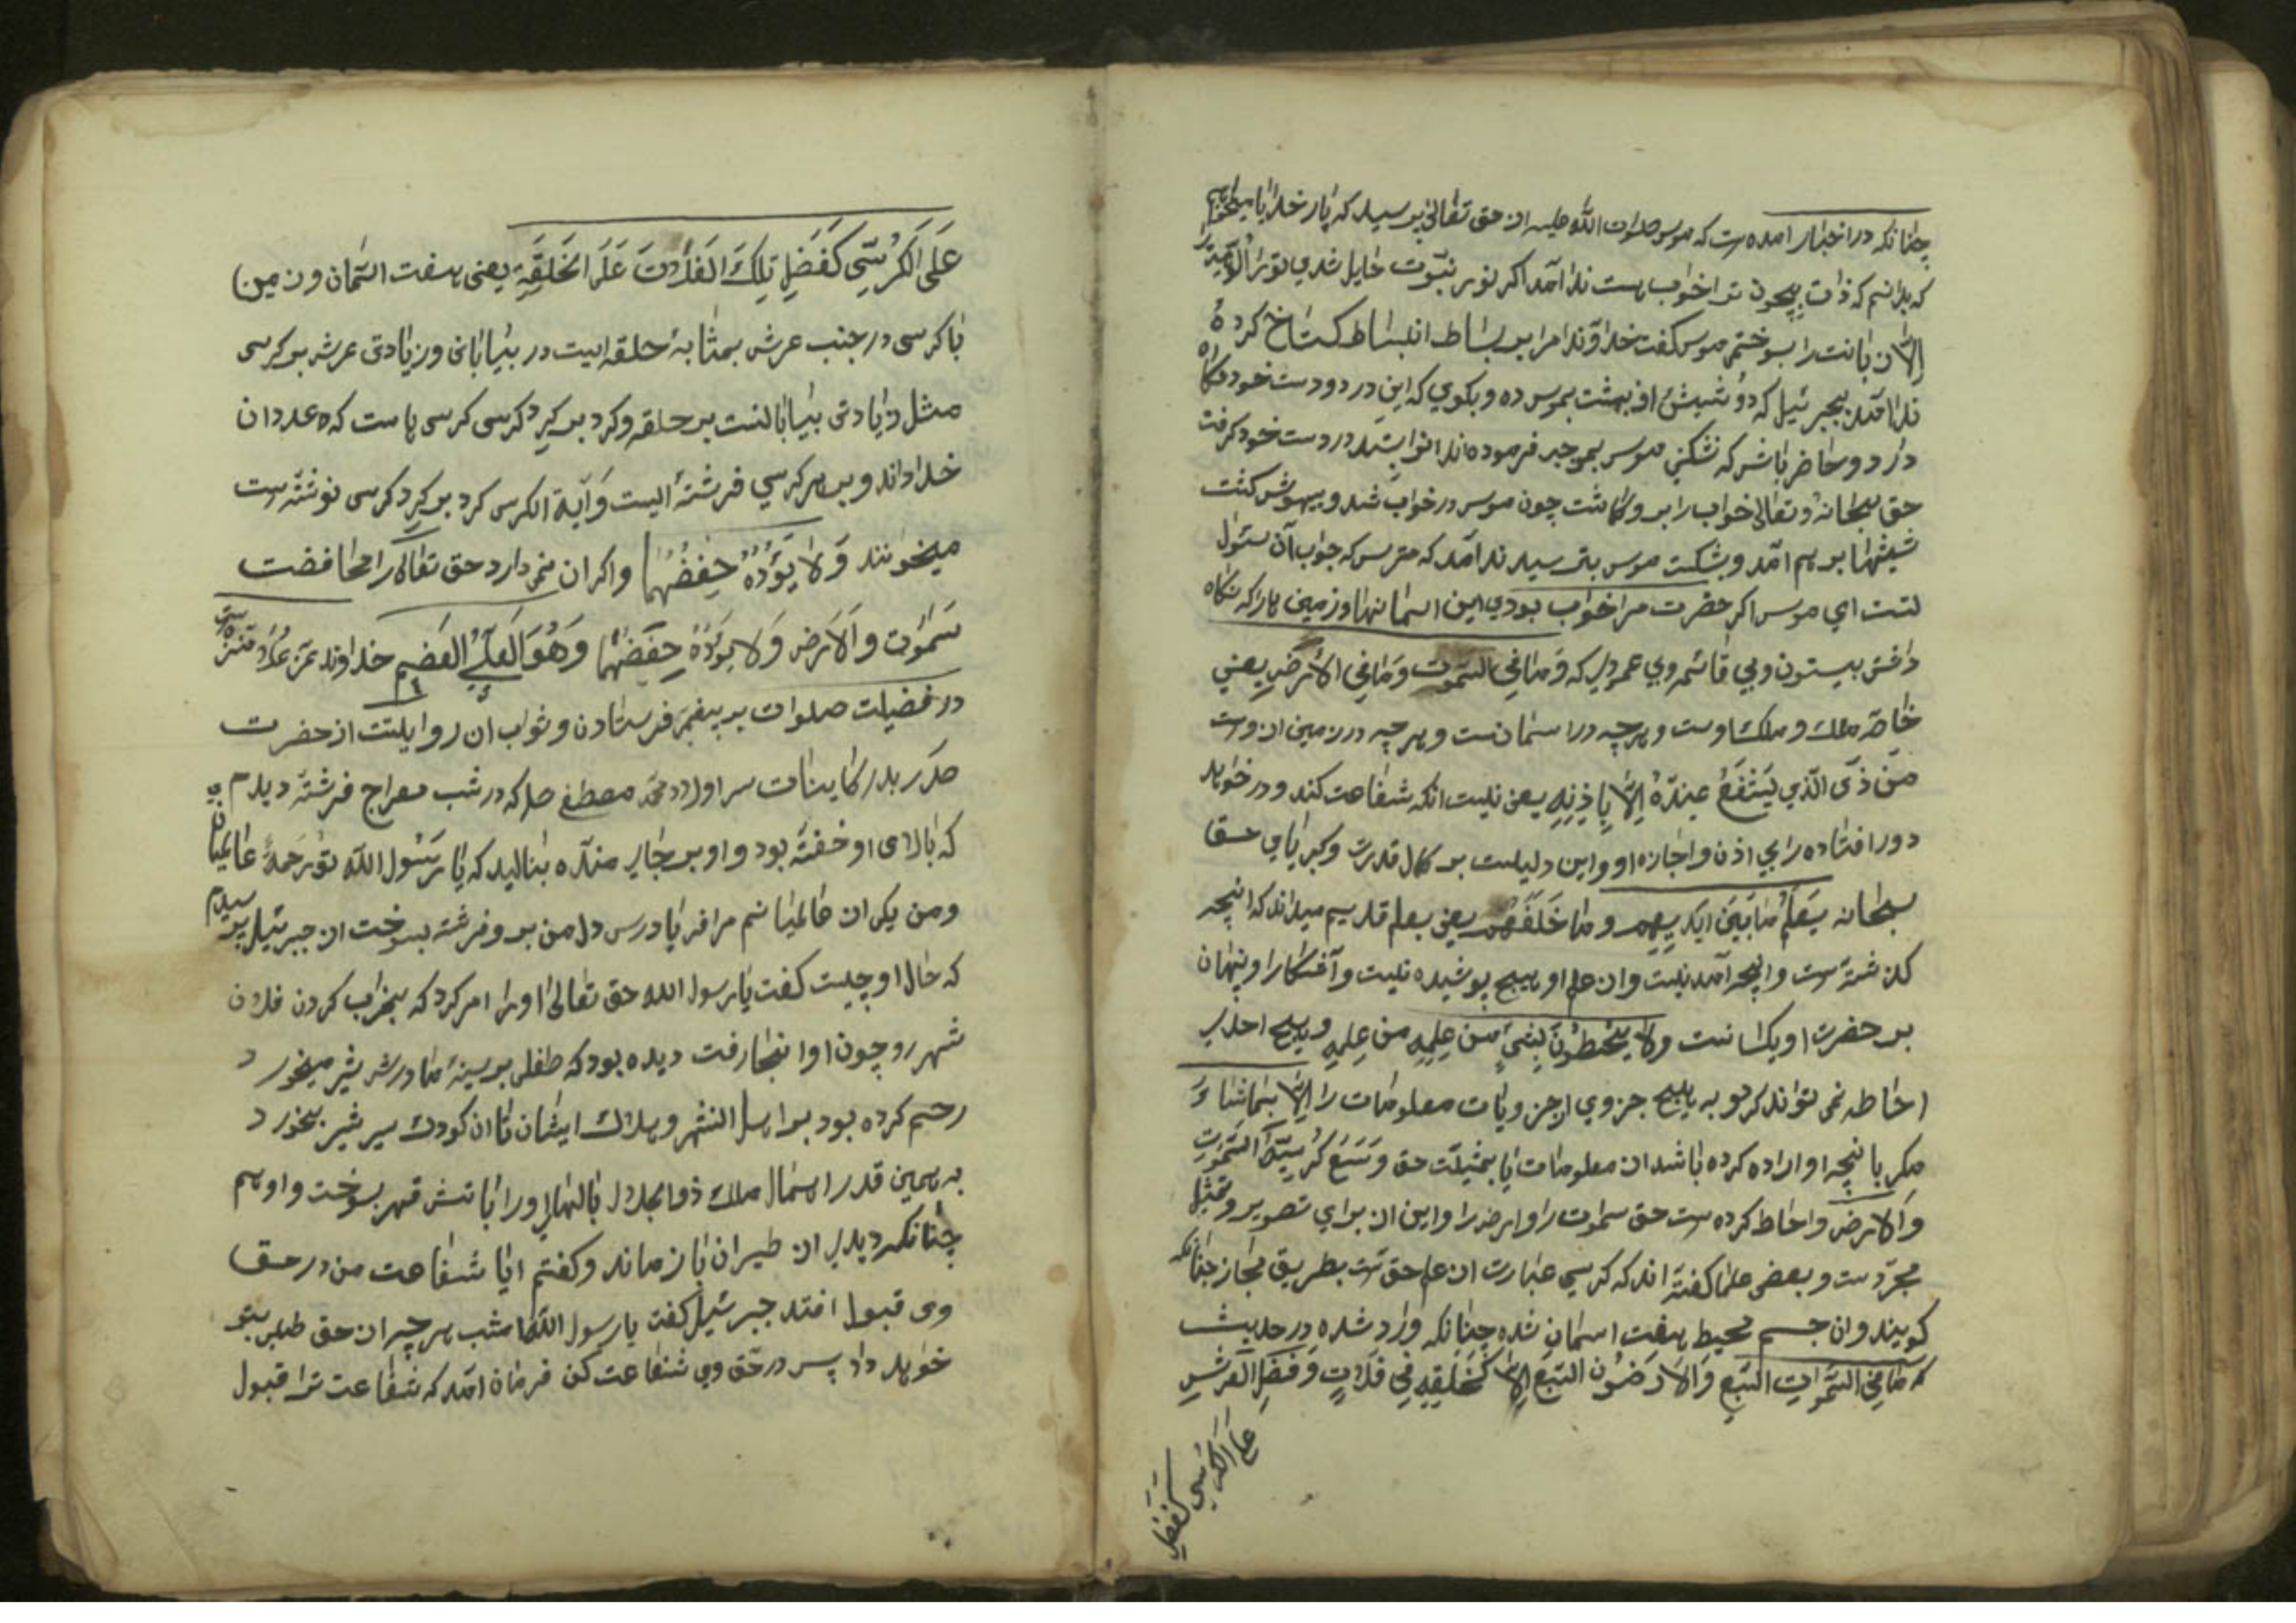 چنانکه در اخبار آمده‌ست که موسی صلوات الله علیه از حق تعالی پرسید که بار خدایا میخواهم
که بدانم که ذات بیچون ترا خواب هست ندا آمد اکر نور نبوت حایل شدی ترا
الآن بانت را بسوختم موسی کفت خداوندا مرا بر بساط انبساط کستاخ کرده
ندا آمد بجبرئیل که دو شیشه از بهشت بموسی ده و بکوی که این در دو دست خود نکاه
دارد و حاضر باش که نشکنی موسی بموجب فرموده ندا انرا بستد در دست خود کرفت
حق سبحانه و تعالی خواب را بر وکماشت چون موسی در خواب شد و بیهوش کشت
شیشها بر هم آمد و بشکست موسی بترسید ندا آمد که مترس که جواب آن سئول
تست ای موسی اکر حضرت مرا خواب بودی این اسمانها و زمین ها را که نکاه
داشتی بیستون و بی قائمه و بی عمودی که وَمَا فِی السَّمٰوٰتِ وَمَا فِی الْاَرْضِ یعنی
خاصه ملک و ملک اوست و هر چه در اسمانست و هر چه در زمین از وست
مَنْ ذَی الَّذِی یَشْفَعُ عِنْدَهُ اِلَّا بِاِذْنِهِ یعنی نیست انکه شفاعت کند و در خواهد
دور افتاده را بی اذن و اجازه او و این دلیلست بر کمال قدرت و کبریایی حق
سبحانه یَعْلَمُ مَا بَیْنَ اَیْدِیهِمْ وَمَا خَلْفَهُمْ یعنی بعلم قدیم میداند که انچه
کذشته‌ست و انچه آمدنیست و از علم او هیچ پوشیده نیست و آشکارا و پنهان
بر حضرت او یکسانست وَلَا یُحِیطُونَ بِشَیْءٍ مِنْ عِلْمِهِ من عِلمِهِ و هیچ احدی
احاطه نمی تواند کرد به هیچ جزوی از جزویات معلومات را اِلَّا بِمَا شَاءَ
مکر بانچه او اراده کرده باشد از معلومات حق وَسِعَ كُرْسِيُّهُ السَّمٰوٰتِ
وَالْاَرْضَ و احاط کرده‌ست حق سموات را و ارض را و این از برای تصویر و تمثیل
مجردست و بعضی علما کفته اند که کرسی عبارت از علم حق‌ست بطریق مجاز چنانکه
کویند و ان جسم محیط بهفت اسمان شده چنانکه وارد شده در حدیث
که مَا فِی السَّمٰوٰاتِ السَّبْعِ وَالْاَرَضُونَ السَّبْعِ اِلَّا کَحَلْقَةٍ فِی فَلَاتٍ وَفَضْلِ الْعَرْشِ
عَلَی الْکُرْسِی کَفَضْلِ
عَلَی الْکُرْسِّی کَفَضْلِ تِلْكَ الفَلَاتَ عَلَی الْحَلْقَةِ یعنی هفت اسمان و زمین
با کرسی در جنب عرش بمثابهٔ حلقه ایست در بیابانی و زیادتی عرش بر کرسی
مثل زیادتی بیابانست بر حلقه و کرد بر کرد کرسی کرسی هاست که عدد ان
خدا داند و بر هر کرسی فرشتهٔ ایست و آیة الکرسی کرد بر کرد کرسی نوشته‌ست
میخوانند وَلَا یَؤُدُهُ حِفْظُهُمَا و اکران نمی دارد حق تعالی را محافضت
سَمٰوٰت وَالْاَرْض وَلَا یَؤُدُهُ حِفْضُهُمَا وَهُوَ الْعَلِیُّ الْعَضِیم خداوند عز علا منزه‌ست
در فضیلت صلوات بر پیغمبر فرستادن و ثواب ان روایتست از حضرت
صدر بدر کاینات سر اولاد محمد مصطفی صل که در شب معراج فرشته دیدم
که بالای او خفته بود و او بر جای منده بنالید که یا رسول الله تو رحمة عالمیان
و من یکی از عالمیانم مرا فریاد رس دل من بر و فرشته بسوخت از جبرئیل پرسیدم
که حال او چیست کفت یا رسول الله حق تعالی او را امر کرد که بخراب کردن فلان
شهر رو چون او انجا رفت دیده بود که طفلی بر سینهٔ مادرش شیر میخورد
رحم کرده بود بر اهل الشهر و هلاك ایشان تا ان کودك سیر شیر بخورد
به همین قدر اهمال ملك ذو الجلال بالهای او را باتش قهر بسوخت و او هم
چنانکه دیدی از طیران باز ماند و کفتم ایا شفاعت من در حق
وی قبول افتد جبرئیل کفت یا رسول الله امشب هر چه از حق طلبی بتو
خواهد داد پس در حق وی شفاعت کن فرمان آمد که شفاعت ترا قبول